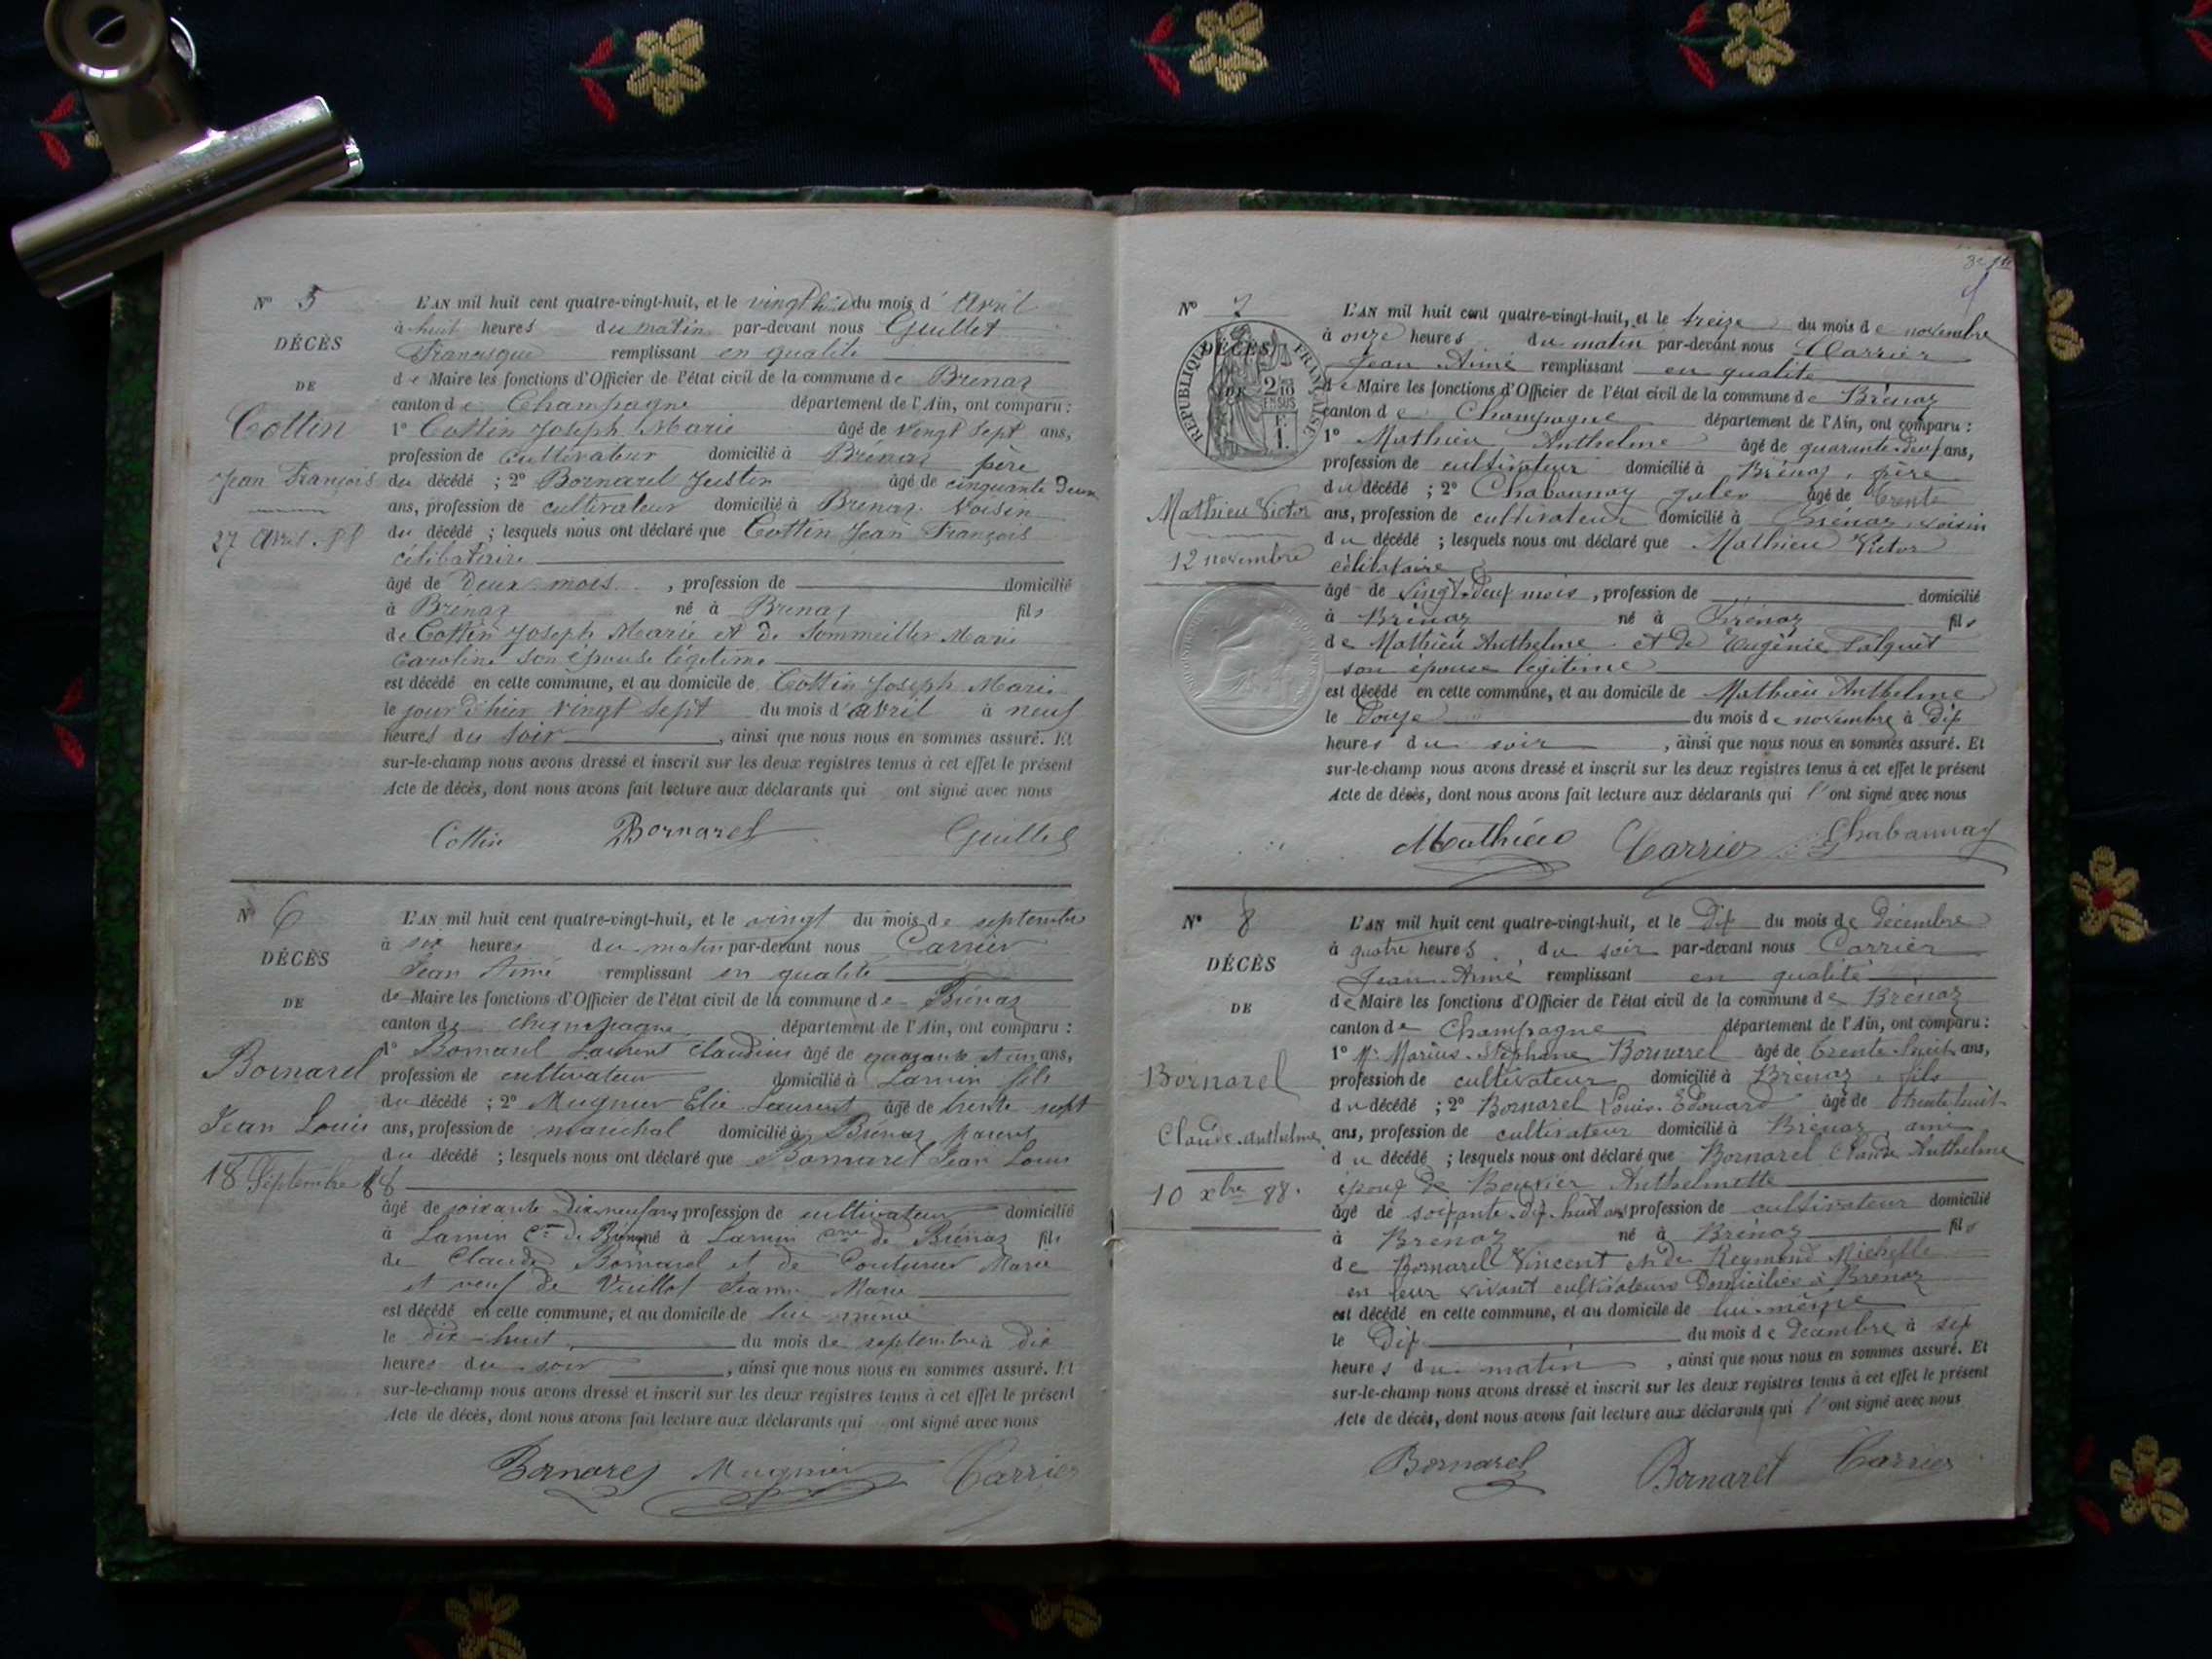 N° 5
DÉCÈS
DE
Cottin
Jean François
27 Avril. 88
L'AN mil huit cent quatre-vingt-huit, et le vingt huit du mois d' Avril
à huit heures du matin par-devant nous Guillet
Francisque remplissant en qualité
de Maire les fonctions d'Officier de l'état civil de la commune de Brénaz
canton de Champagne département de l'Ain, ont comparu :
1° Cottin Joseph Marie âgé de vingt sept ans,
profession de cultivateur domicilié à Brénaz père
du décédé ; 2° Bornarel Justin âgé de cinquante deux
ans, profession de cultivateur domicilié à Brénaz voisin
du décédé ; lesquels nous ont déclaré que Cottin Jean François
célibataire
âgé de deux mois , profession de domicilié
à Brénaz né à Brénaz fils
de Cottin Joseph Marie et de Sommeiller Marie
Caroline son épouse légitime
est décédé en cette commune, et au domicile de Cottin Joseph Marie
le jour d'hier vingt sept du mois d'avril à neuf
heures du soir , ainsi que nous nous en sommes assuré. Et
sur-le-champ nous avons dressé et inscrit sur les deux registres tenus à cet effet le présent
Acte de décès, dont nous avons fait lecture aux déclarants qui ont signé avec nous
Cottin Bornarel Guillet
N° 6
DÉCÈS
DE
Bornarel
Jean Louis
18 Septembre 88
L'AN mil huit cent quatre-vingt-huit, et le vingt du mois de septembre
à six heures du matin par-devant nous Carrier
Jean Aimé remplissant en qualité
de Maire les fonctions d'Officier de l'état civil de la commune de Brénaz
canton de champagne département de l'Ain, ont comparu :
1° Bornarel Laurent Claudius âgé de quarante et un ans,
profession de cultivateur domicilié à Lamin fils
du décédé ; 2° Mugnier Elie Laurent âgé de trente sept
ans, profession de maréchal domicilié à Brénaz parent
du décédé ; lesquels nous ont déclaré que Bornarel Jean Louis
âgé de soixante dix neuf ans, profession de cultivateur domicilié
à Lamin Cne de Brénaz né à Lamin cne de Brénaz fils
de Claude Bornarel et de Couturier Marie
et veuf de Vuillot Jeanne Marie
est décédé en cette commune, et au domicile de lui-même
le dix-huit du mois de septembre à dix
heures du soir , ainsi que nous nous en sommes assuré. Et
sur-le-champ nous avons dressé et inscrit sur les deux registres tenus à cet effet le présent
Acte de décès, dont nous avons fait lecture aux déclarants qui ont signé avec nous
Bornarel Mugnier Carrier
N° 7
DÉCÈS
DE
RÉPUBLIQUE FRANÇAISE
2/10 EN SUS
F. 1.
Mathieu Victor
12 novembre
L'AN mil huit cent quatre-vingt-huit, et le treize du mois de novembre
à onze heures du matin par-devant nous Carrier
Jean Aimé remplissant en qualité
de Maire les fonctions d'Officier de l'état civil de la commune de Brénaz
canton de Champagne département de l'Ain, ont comparu :
1° Mathieu Anthelme âgé de quarante-deux ans,
profession de cultivateur domicilié à Brénaz, père
du décédé ; 2° Chabannay Jules âgé de trente
ans, profession de cultivateur domicilié à Brénaz, voisin
du décédé ; lesquels nous ont déclaré que Mathieu Victor
célibataire
âgé de vingt-deux mois , profession de domicilié
à Brénaz né à Brénaz fils
de Mathieu Anthelme et de Eugénie Falquet
son épouse légitime
est décédé en cette commune, et au domicile de Mathieu Anthelme
le douze du mois de novembre à dix
heures du soir , ainsi que nous nous en sommes assuré. Et
sur-le-champ nous avons dressé et inscrit sur les deux registres tenus à cet effet le présent
Acte de décès, dont nous avons fait lecture aux déclarants qui l'ont signé avec nous
Mathieu Carrier Chabannay
N° 8
DÉCÈS
DE
Bornarel
Claude Anthelme
10 xbre 88.
L'AN mil huit cent quatre-vingt-huit, et le dix du mois de décembre
à quatre heures du soir par-devant nous Carrier
Jean Aimé remplissant en qualité
de Maire les fonctions d'Officier de l'état civil de la commune de Brénaz
canton de Champagne département de l'Ain, ont comparu :
1° Mr Marius Stéphane Bornarel âgé de trente huit ans,
profession de cultivateur domicilié à Brénaz, fils
du décédé ; 2° Bornarel Louis Edouard âgé de trente huit
ans, profession de cultivateur domicilié à Brénaz, ami
du décédé ; lesquels nous ont déclaré que Bornarel Claude Anthelme
époux de Bouvier Anthelmette
âgé de soixante-dix-huit ans profession de cultivateur domicilié
à Brénaz né à Brénaz fils
de Bornarel Vincent et de Reymond Michelle
en leur vivant cultivateurs domiciliés à Brénaz
est décédé en cette commune, et au domicile de lui-même
le dix du mois de décembre à sept
heures du matin , ainsi que nous nous en sommes assuré. Et
sur-le-champ nous avons dressé et inscrit sur les deux registres tenus à cet effet le présent
Acte de décès, dont nous avons fait lecture aux déclarants qui l'ont signé avec nous
Bornarel Bornarel Carrier